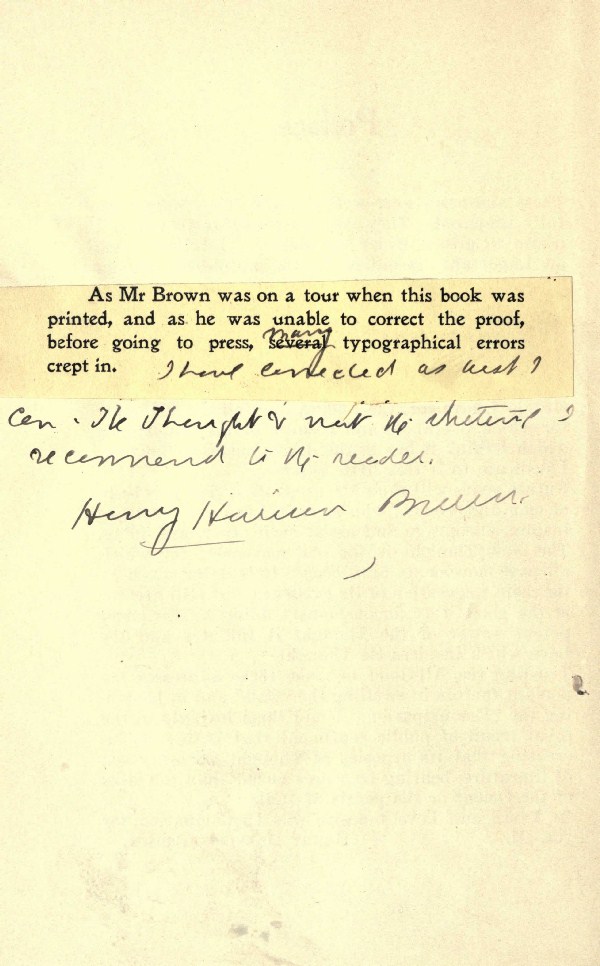 As Mr Brown was on a tour when this book was
printed, and as he was unable to correct the proof,
many
before going to press, several typographical errors
crept in. I have corrected as best I
can. The thought & not the I
recommend to the reader.
Henry Harrison Brown.